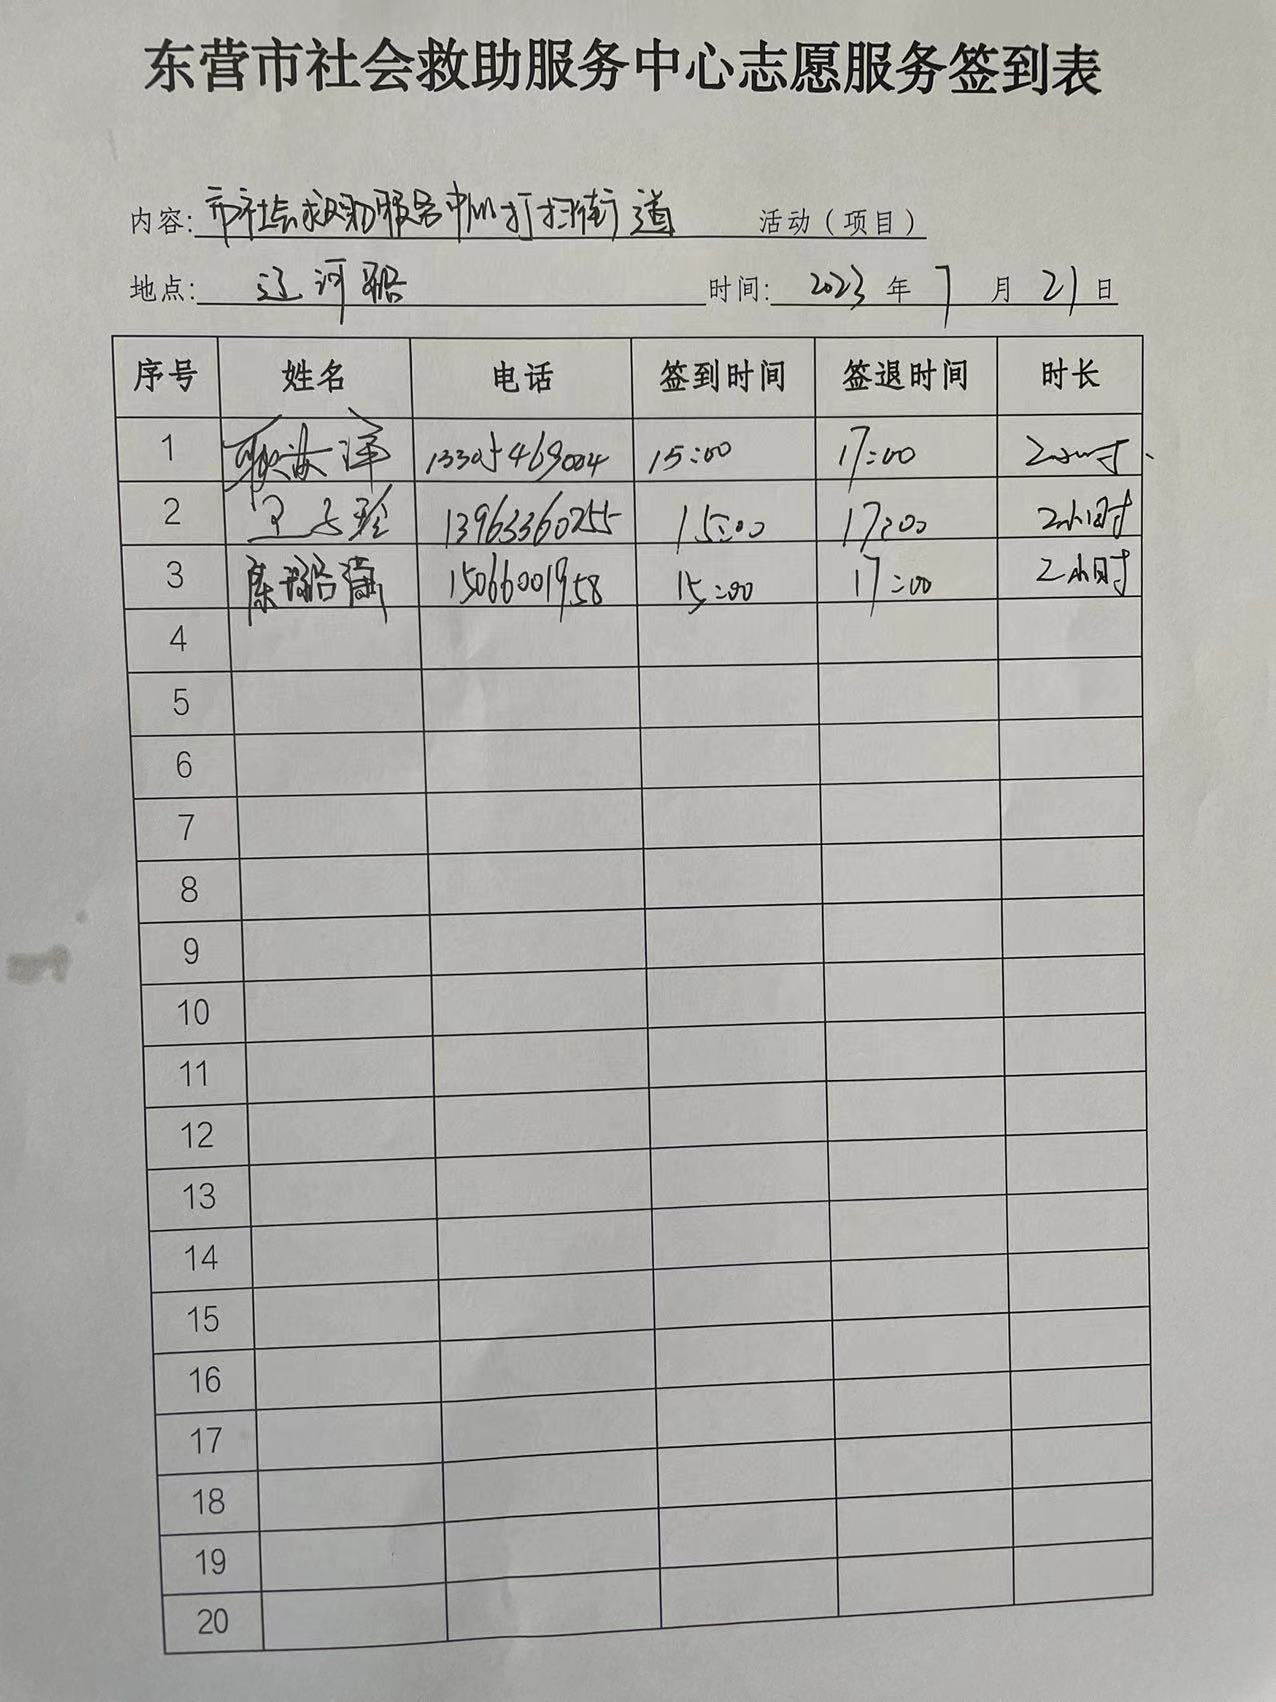 东营市社会救助服务中心志愿服务签到表
内容: 市社会救助服务中心打扫街道 活动（项目）
地点: 辽河路 时间: 2023 年 7 月 21 日
序号 姓名 电话 签到时间 签退时间 时长
1 15:00 17:00 2小时
2 13963360255 15:00 17:00 2小时
3 陈璐潇 15066001958 15:00 17:00 2小时
4
5
6
7
8
9
10
11
12
13
14
15
16
17
18
19
20